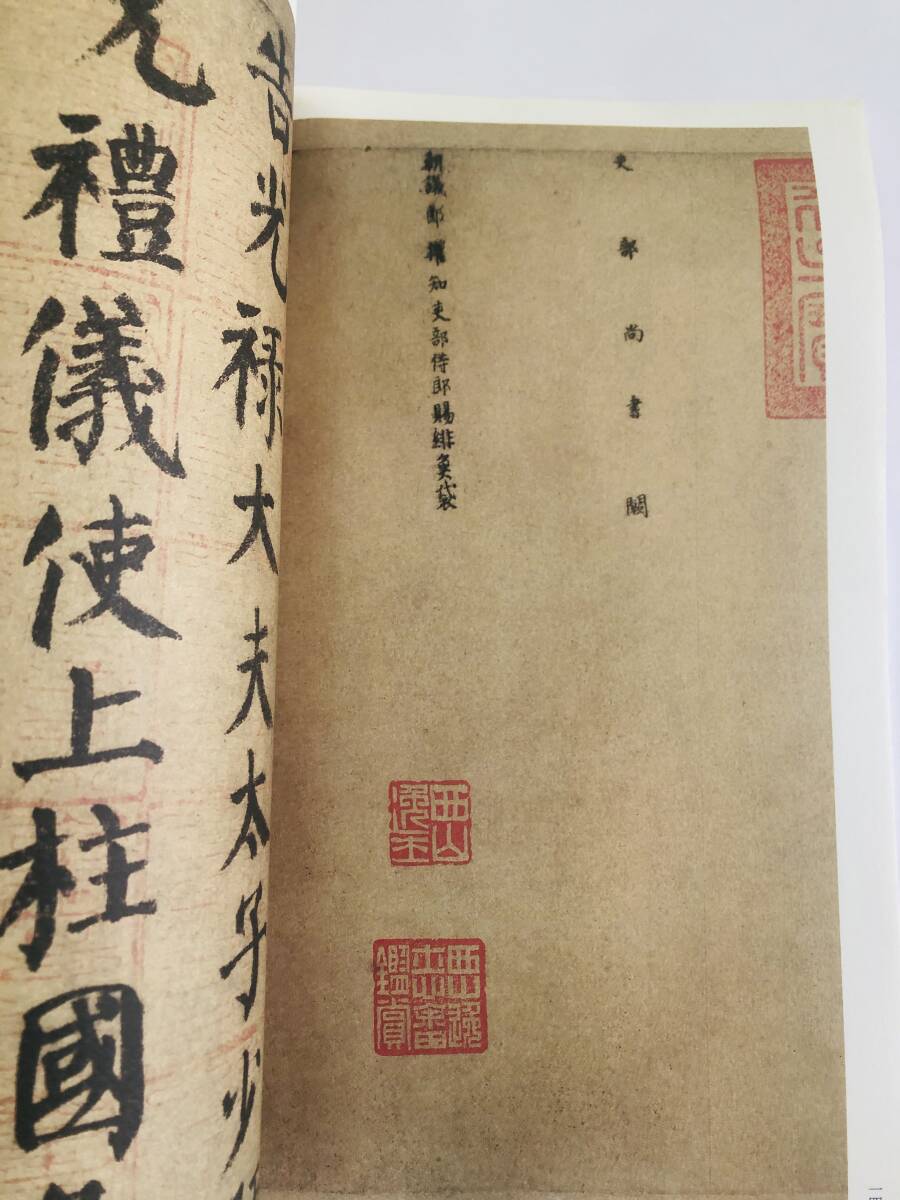 吏部尚書闕
朝議郎權知吏部侍郎賜緋魚袋
西山逸士
鑑賞
告光祿大夫太子少
禮儀使上柱國